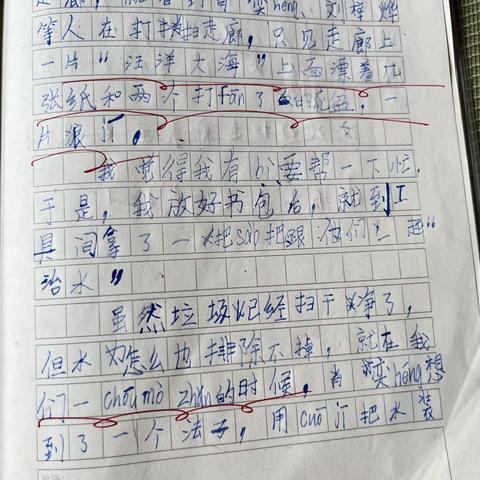 等人在打扫走廊，只见走廊上
一片“汪洋大海”上面漂着几
张纸和两个打fān了的，一
片狼jí。
我觉得我有bì要帮一下忙，
于是，我放好书包后，就到工
具间拿了一把sào把跟他们一起“
治水”
虽然垃圾已经扫干净了，
但水为怎么也排除不掉，就在我
们一chóu mò zhǎn的时候，肖奕héng想
到了一个法子，用cuō jī把水装